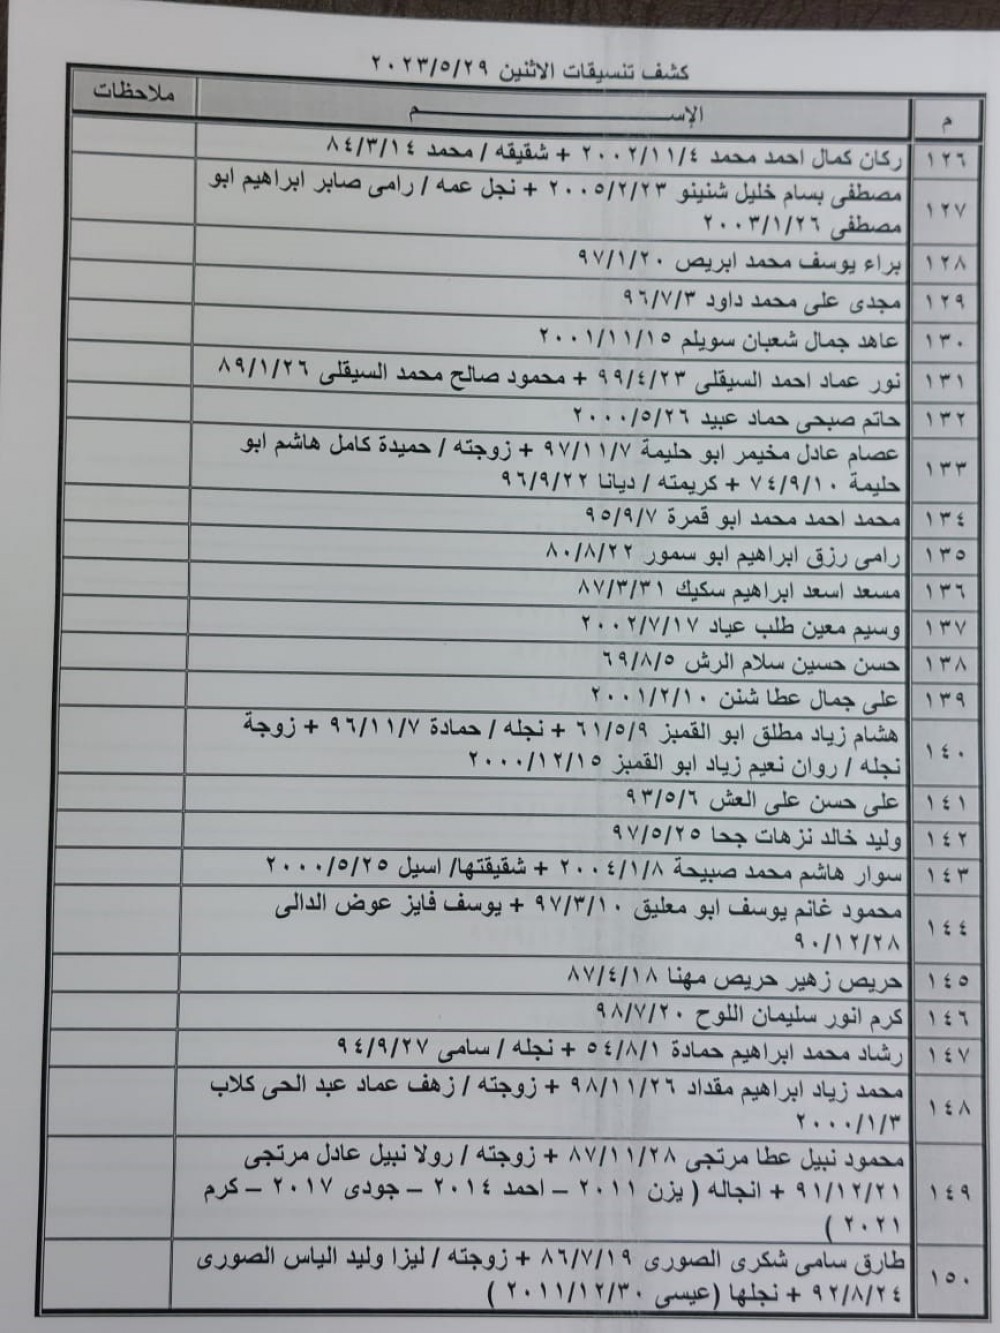 كشف تنسيقات الاثنين ٢٠٢٣/٥/٢٩
م الإســـــــــــم ملاحظات
١٢٦ ركان كمال احمد محمد ٢٠٠٢/١١/٤ + شقيقه / محمد ٨٤/٣/١٤
١٢٧ مصطفى بسام خليل شنينو ٢٠٠٥/٢/٢٣ + نجل عمه / رامى صابر ابراهيم ابو
مصطفى ٢٠٠٣/١/٢٦
١٢٨ براء يوسف محمد ابريص ٩٧/١/٢٠
١٢٩ مجدى على محمد داود ٩٦/٧/٣
١٣٠ عاهد جمال شعبان سويلم ٢٠٠١/١١/١٥
١٣١ نور عماد احمد السيقلى ٩٩/٤/٢٣ + محمود صالح محمد السيقلى ٨٩/١/٢٦
١٣٢ حاتم صبحى حماد عبيد ٢٠٠٠/٥/٢٦
١٣٣ عصام عادل مخيمر ابو حليمة ٩٧/١١/٧ + زوجته / حميدة كامل هاشم ابو
حليمة ٧٤/٩/١٠ + كريمته / ديانا ٩٦/٩/٢٢
١٣٤ محمد احمد محمد ابو قمرة ٩٥/٩/٧
١٣٥ رامى رزق ابراهيم ابو سمور ٨٠/٨/٢٢
١٣٦ مسعد اسعد ابراهيم سكيك ٨٧/٣/٣١
١٣٧ وسيم معين طلب عياد ٢٠٠٢/٧/١٧
١٣٨ حسن حسين سلام الرش ٦٩/٨/٥
١٣٩ على جمال عطا شنن ٢٠٠١/٢/١٠
١٤٠ هشام زياد مطلق ابو القمبز ٦١/٥/٩ + نجله / حمادة ٩٦/١١/٧ + زوجة
نجله / روان نعيم زياد ابو القمبز ٢٠٠٠/١٢/١٥
١٤١ على حسن على العش ٩٣/٥/٦
١٤٢ وليد خالد نزهات جحا ٩٧/٥/٢٥
١٤٣ سوار هاشم محمد صبيحة ٢٠٠٤/١/٨ + شقيقتها/ اسيل ٢٠٠٠/٥/٢٥
١٤٤ محمود غانم يوسف ابو معليق ٩٧/٣/١٠ + يوسف فايز عوض الدالى
٩٠/١٢/٢٨
١٤٥ حريص زهير حريص مهنا ٨٧/٤/١٨
١٤٦ كرم انور سليمان اللوح ٩٨/٧/٢٠
١٤٧ رشاد محمد ابراهيم حمادة ٥٤/٨/١ + نجله / سامى ٩٤/٩/٢٧
١٤٨ محمد زياد ابراهيم مقداد ٩٨/١١/٢٦ + زوجته / زهف عماد عبد الحى كلاب
٢٠٠٠/١/٣
١٤٩ محمود نبيل عطا مرتجى ٨٧/١١/٢٨ + زوجته / رولا نبيل عادل مرتجى
٩١/١٢/٢١ + انجاله ( يزن ٢٠١١ – احمد ٢٠١٤ – جودى ٢٠١٧ – كرم
٢٠٢١ )
١٥٠ طارق سامى شكرى الصورى ٨٦/٧/١٩ + زوجته / ليزا وليد الياس الصورى
٩٢/٨/٢٤ + نجلها (عيسى ٢٠١١/١٢/٣٠ )